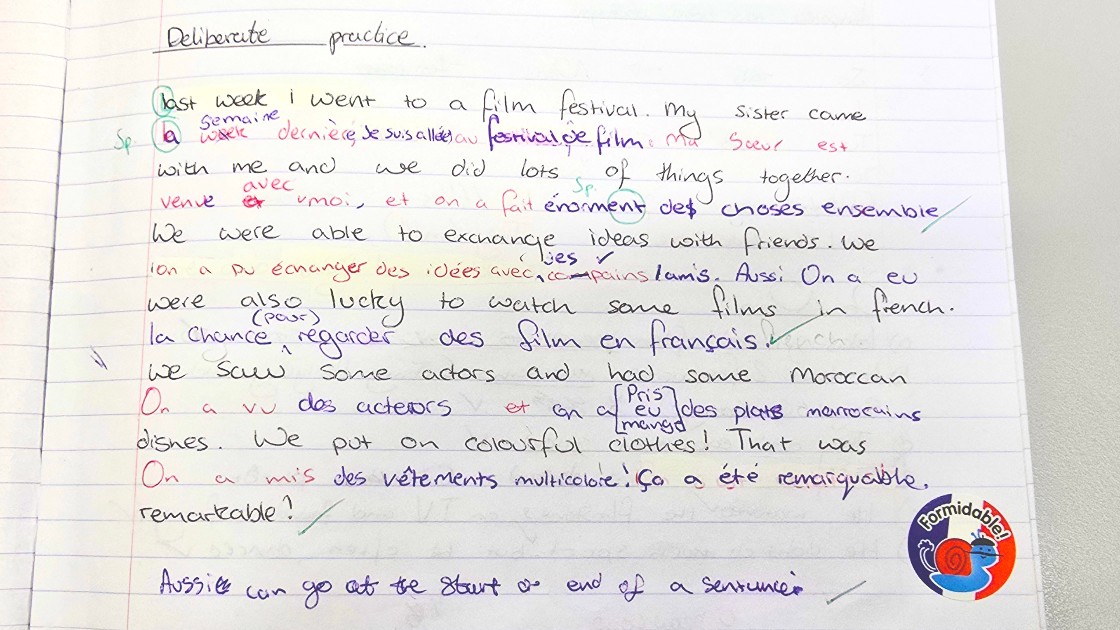 Deliberate practice.
last week i went to a film festival. My sister came
semaine
Sp. la week dernière, Je suis allé(e) au festival de film. Ma Sœur est
with me and we did lots of things together.
avec Sp.
venue et moi, et on a fait énorment des choses ensemble
We were able to exchange ideas with friends. We
les ✓
on a pu échanger des idées avec, copains/amis. Aussi On a eu
were also lucky to watch some films in french.
(pour)
la chance regarder des film en français.
We saw some actors and had some Moroccan
Pris
On a vu des acteurs et on a eu des plats marrocains
mangé
dishes. We put on colourful clothes! That was
On a mis des vêtements multicolore! Ça a été remarquable.
remarkable!
Aussi can go at the start or end of a sentence
Formidable!